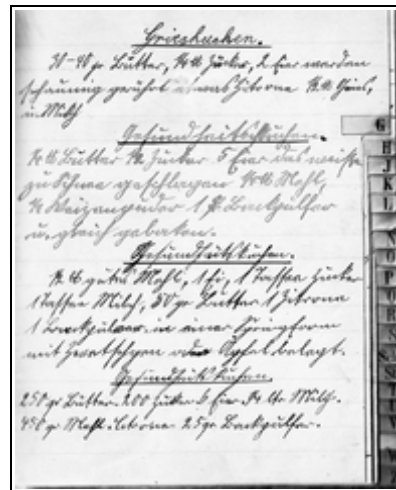 Grieskuchen.
30-40 gr Butter, Zucker, 2 Eier werden
schaumig gerührt etwas Zitrone
u. Milch
Gesundheitskuchen.
Butter Zucker 5 Eier das weiße
zu Schnee geschlagen Mehl,
1 P. Backpulfer
u. gleich gebaken.
Gesundheitskuchen.
Mehl, 1 Ei, 1 Tasse Zucker
1 Tasse Milch, 50 gr Butter 1 Zitrone
1 Backpulver in einer Springform
mit Zwetschgen oder Apfel belegt.
Gesundheitskuchen.
250 gr Butter 200 Zucker 6 Eier 1/4 Ltr Milch.
450 gr Mehl. Citrone 25 gr Backpulfer.
G
H
J
K
L
N
O
P
Q
R
S
T
V
W